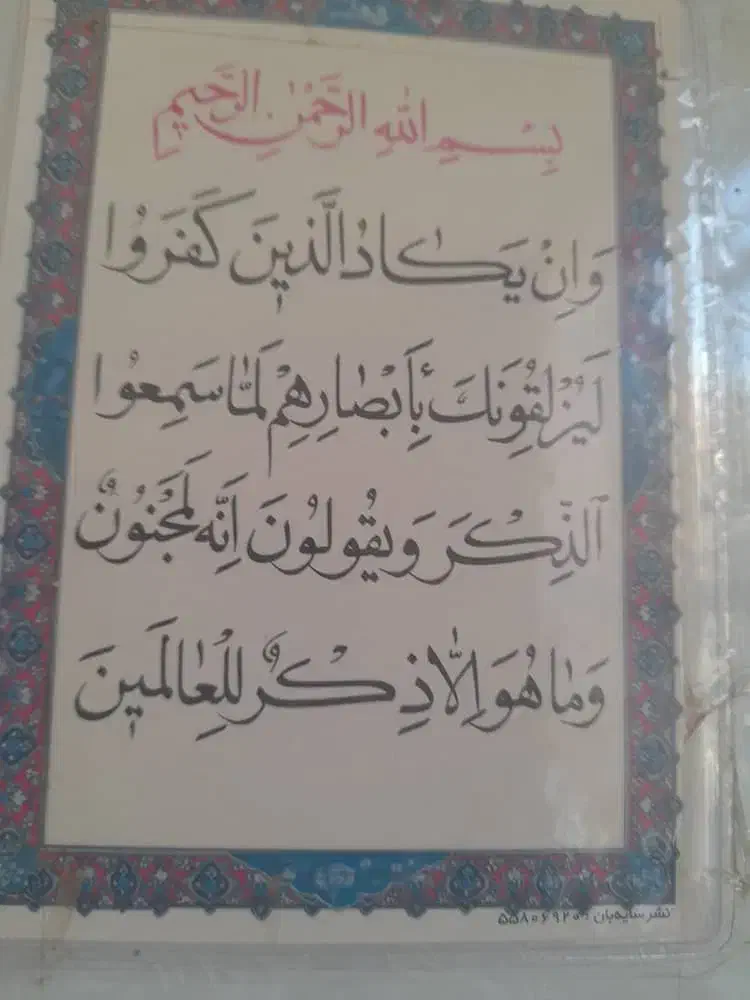 بِسْمِ اللهِ الرَّحْمٰنِ الرَّحيمِ
وَاِنْ يَكادُ الَّذينَ كَفَرُوا
لَيُزْلِقُونَكَ بِأَبْصارِهِمْ لَمّا سَمِعُوا
الذِّكْرَ وَيَقُولُونَ اِنَّهُ لَمَجْنُونٌ
وَما هُوَ اِلّا ذِكْرٌ لِلْعالَمينَ
نشر سایه‌بان ۵۵۸۰۶۹۲۰